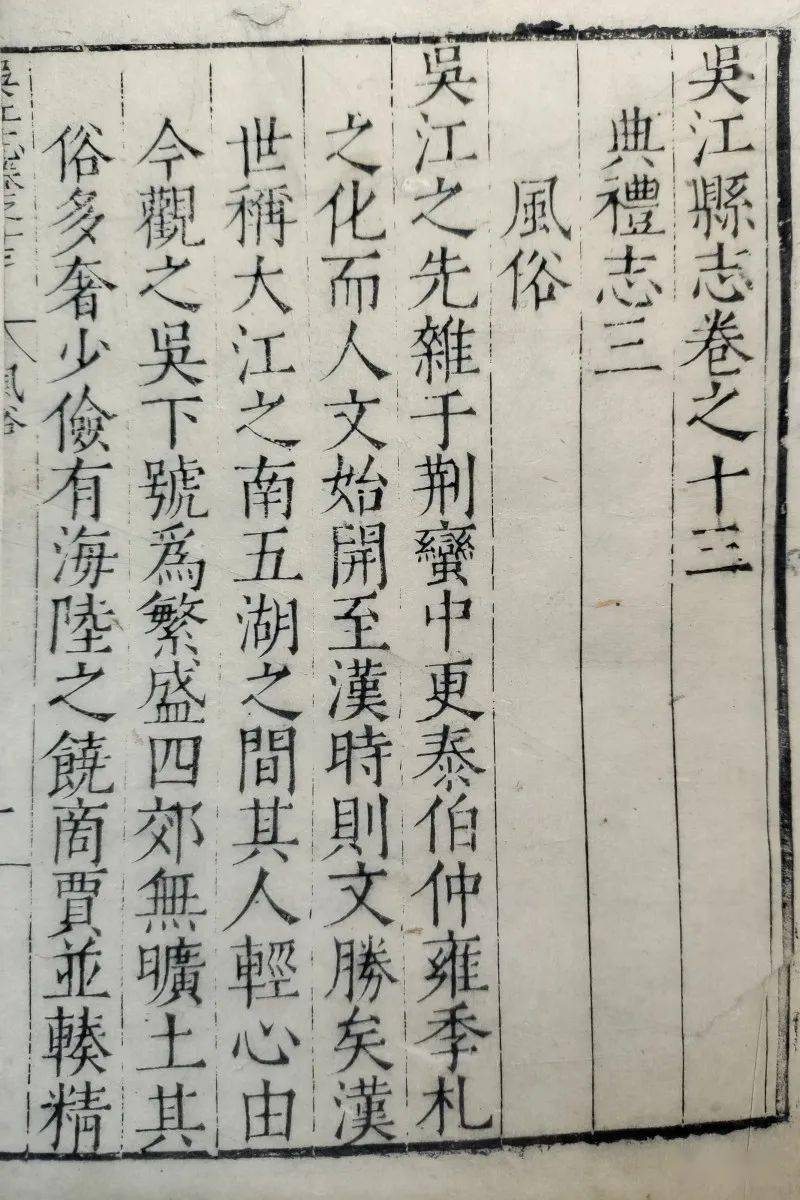 吳江縣志卷之十三
典禮志三
風俗
吳江之先雜于荆蠻中更泰伯仲雍季札
之化而人文始開至漢時則文勝矣漢
世稱大江之南五湖之間其人輕心由
今觀之吳下號爲繁盛四郊無曠土其
俗多奢少儉有海陸之饒商賈並輳精
吳江志卷之十三 風俗